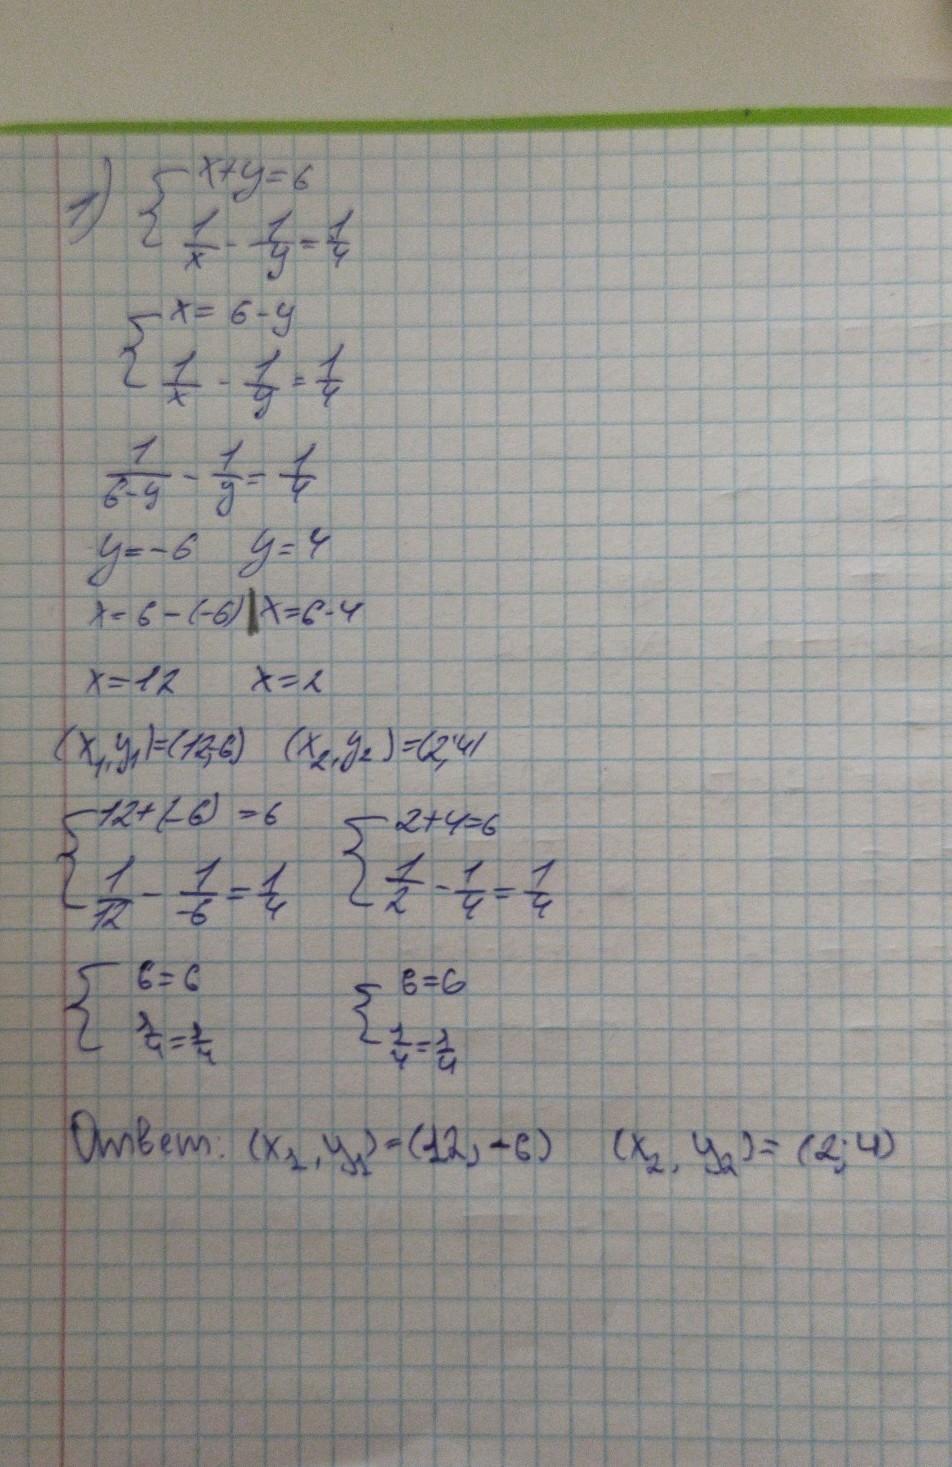 1) { x+y=6
1/x - 1/y = 1/4
{ x= 6-y
1/x - 1/y = 1/4
1/(6-y) - 1/y = 1/4
y=-6 y=4
x=6-(-6) | x=6-4
x=12 x=2
(x₁,y₁)=(12;-6) (x₂,y₂)=(2;4)
{ 12+(-6) =6 { 2+4=6
1/12 - 1/-6 = 1/4 1/2 - 1/4 = 1/4
{ 6=6 { 6=6
1/4 = 1/4 1/4 = 1/4
Ответ: (x₁, y₁)=(12; -6) (x₂, y₂)= (2; 4)